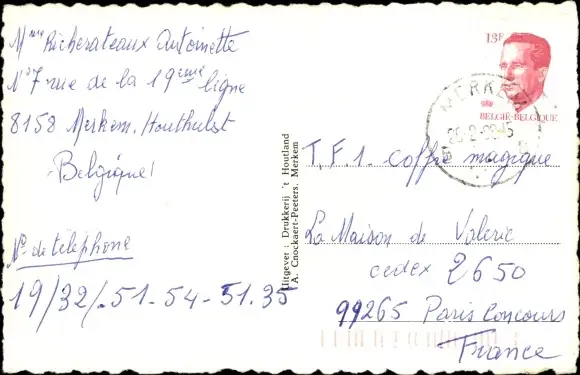 Mme Richerateaux Antoinette
N° 7 rue de la 19eme ligne
8158 Merkem. Houthulst
Belgique
N° de telephone
19/32/.51-54-51.35
Uitgever: Drukkerij 't Houtland
A. Cnockaert-Peeters, Merkem
13F
BELGIË-BELGIQUE
MERKEM
T.F.1. Coffre magique
La Maison de Valerie
cedex 2650
99265 Paris Concours
France